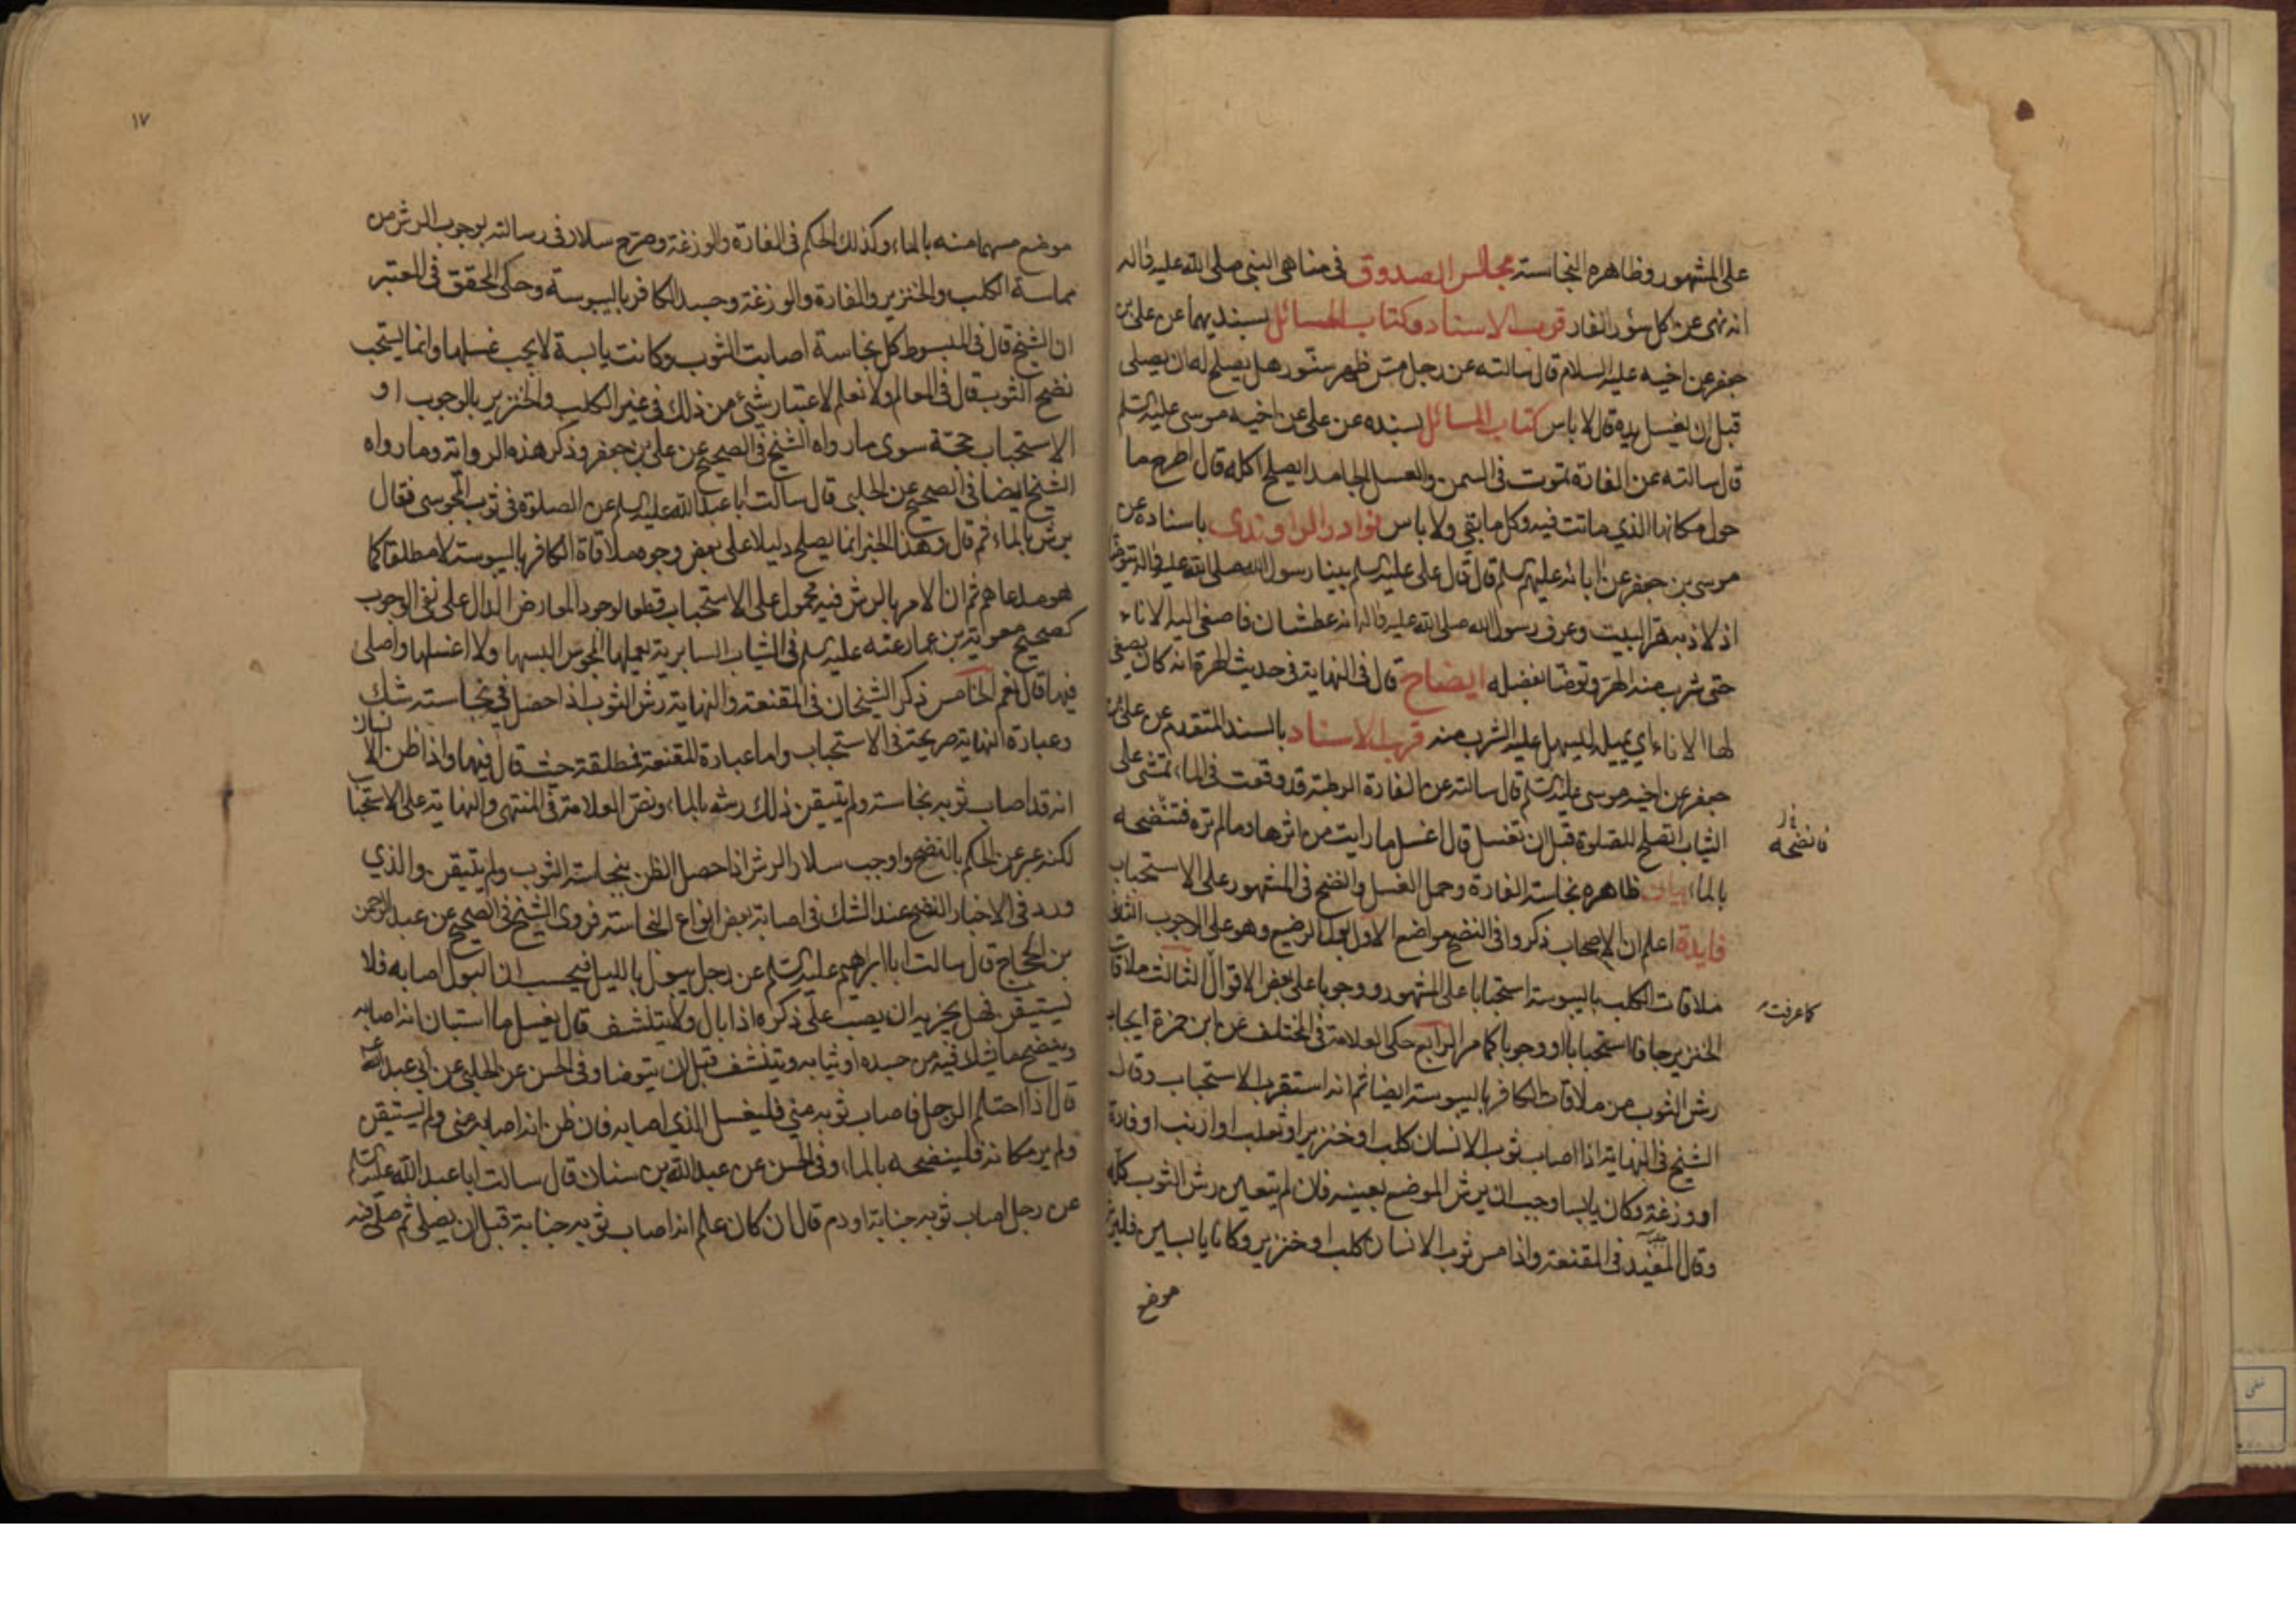 على المشهور وظاهره النجاسته مجالس الصدوق فى مناهى النبي صلى الله عليه واله
انه نهى عن كل سؤر الفار قرب الاسناد وكتاب المسائل بسنديهما عن على بن
جعفر عن اخيه عليه السلام قال سالته عن رجل مس ظهر سنّور هل يصلح له ان يصلى
قبل ان يغسل يده قال لا باس كتاب المسائل بسنده عن على عن اخيه موسى عليه السلم
قال سالته عن الفارة تموت فى السمن والعسل الجامد ايصلح اكله قال اطرح ما
حول مكانها الذي ماتت فيه وكل ما بقى ولا باس نوادر الراوندى باسناده عن
موسى بن جعفر عن ابائه عليهم السلم قال قال على عليه السلم بينا رسول الله صلى الله عليه واله يتوضأ
اذ لاذ به هر البيت وعرف رسول الله صلى الله عليه واله انه عطشان فاصغى اليه الاناء
حتى شرب منه الهرّ وتوضا بفضله ايضاح قال فى النهاية فى حديث الهرة انه كان يصغى
لها الاناء اي يميله ليسهل عليه الشرب منه قرب الاسناد بالسند المتقدم عن على بن
جعفر عن اخيه موسى عليه السلم قال سالته عن الفارة الرطبة قد وقعت فى الماء تمشى على
الثياب اتصلح للصلوة قبل ان تغسل قال اغسل ما رايت من اثرها وما لم تره فتنضحه
فانضحه
بالماء بيان ظاهره نجاسة الفارة وحمل الغسل والنضح فى المشهور على الاستحباب
فايدة اعلم ان الاصحاب ذكروا فى النضح مواضع الاول بول الرضيع وهو على الوجوب الثانى
ملاقات الكلب باليبوسة استحبابا على المشهور ووجوبا على بعض الاقوال الثالث ملاقات
كما عرفت
الخنزير جافا استحبابا او وجوبا كما مر الرابع حكى العلامة فى المختلف عن ابن حمزة ايجاب
رش الثوب من ملاقات الكافر باليبوسة ايضا ثم انه استقرب الاستحباب وقال
الشيخ فى النهاية اذا اصاب ثوب الانسان كلب او خنزير او ثعلب او ارنب او فارة
او وزغة وكان يابسا وجب ان يرش الموضع بعينه فان لم يتعين رش الثوب كله
وقال المفيد فى المقنعة واذا مس ثوب الانسان كلب او خنزير وكانا يابسين فليرش
موضع
١٧
موضع مسهما منه بالماء وكذلك الحكم فى الفارة والوزغة وصرّح سلار فى رسالته بوجوب الرش من
مماسة الكلب والخنزير والفارة والوزغة وجسد الكافر باليبوسة وحكى المحقق فى المعتبر
ان الشيخ قال فى المبسوط كل نجاسة اصابت الثوب وكانت يابسة لا يجب غسلها وانما يستحب
نضح الثوب قال فى المعالم ولا نعلم لاعتبار شيئ من ذلك فى غير الكلب والخنزير بالوجوب او
الاستحباب حجة سوى ما رواه الشيخ فى الصحيح عن على بن جعفر وذكر هذه الرواية وما رواه
الشيخ ايضا فى الصحيح عن الحلبى قال سالت ابا عبد الله عليه السلم عن الصلوة فى ثوب المجوسى فقال
يرش بالماء ثم قال وهذا الخبر انما يصلح دليلا على بعض وجوه ملاقاة الكافر باليبوسة لا مطلقا كما
هو مدعاهم ثم ان الامر بالرش فيه محمول على الاستحباب قطعا لوجود المعارض الدال على نفى الوجوب
كصحيح معوية بن عمار عنه عليه السلم فى الثياب السابرية يعملها المجوس البسها ولا اغسلها واصلى
فيها قال نعم الخامس ذكر الشيخان فى المقنعة والنهاية رش الثوب اذا حصل فى نجاسته شك
وعبارة النهاية صريحة فى الاستحباب واما عبارة المقنعة فمطلقة حيث قال فيها واذا ظن الانسان
انه قد اصاب ثوبه نجاسة ولم يتيقن ذلك رشه بالماء ونص العلامة فى المنتهى والنهاية على الاستحباب
لكنه عبر عن الحكم بالنضح واوجب سلار الرش اذا حصل الظن بنجاسة الثوب ولم يتيقن والذي
ورد فى الاخبار النضح عند الشك فى اصابة بعض انواع النجاسة فروى الشيخ فى الصحيح عن عبد الرحمن
بن الحجاج قال سالت ابا ابراهيم عليه السلم عن رجل يبول بالليل فيحسب ان البول اصابه فلا
يستيقن فهل يجزيه ان يصب على ذكره اذا بال ولا يتنشف قال يغسل ما استبان انه اصابه
وينضح ما يشك فيه من جسده او ثيابه ويتنشف قبل ان يتوضا وفى الحسن عن الحلبى عن ابى عبد الله
قال اذا احتلم الرجل فاصاب ثوبه مني فليغسل الذي اصابه فان ظن انه اصابه منى ولم يستيقن
ولم ير مكانه فلينضحه بالماء وفى الحسن عن عبد الله بن سنان قال سالت ابا عبد الله عليه السلم
عن رجل اصاب ثوبه جنابة او دم قال ان كان علم انه اصاب ثوبه جنابة قبل ان يصلى ثم صلى فيه